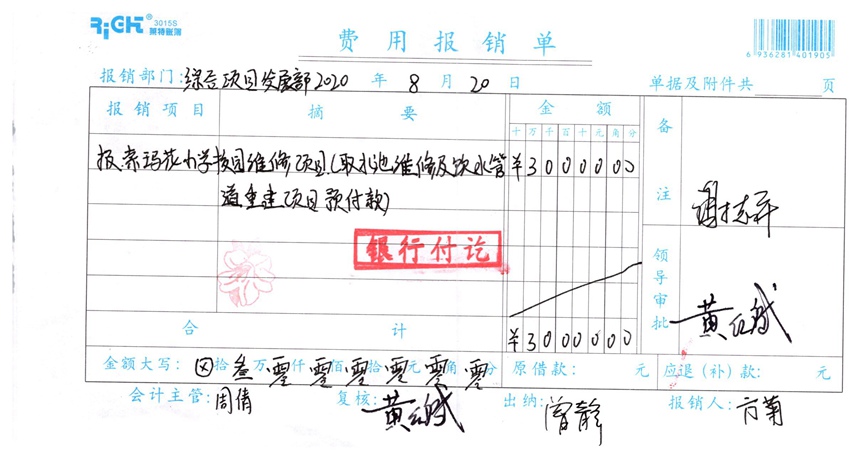 RiCH 3015S
莱特账簿
费用报销单
6 936281 401905
报销部门:综合项目发展部 2020 年 8 月 20 日 单据及附件共 页
报销项目 摘要 金额 备注
十万千百十元角分
报索玛花小学校园维修项目(取水池维修及饮水管 ¥3000000
道重建项目预付款)
银行付讫
领导审批
合计 ¥3000000
金额大写: ⊗拾叁万零仟零佰零拾零元零角零分 原借款: 元 应退(补)款: 元
会计主管:周倩 复核: 出纳:曾静 报销人:方菊